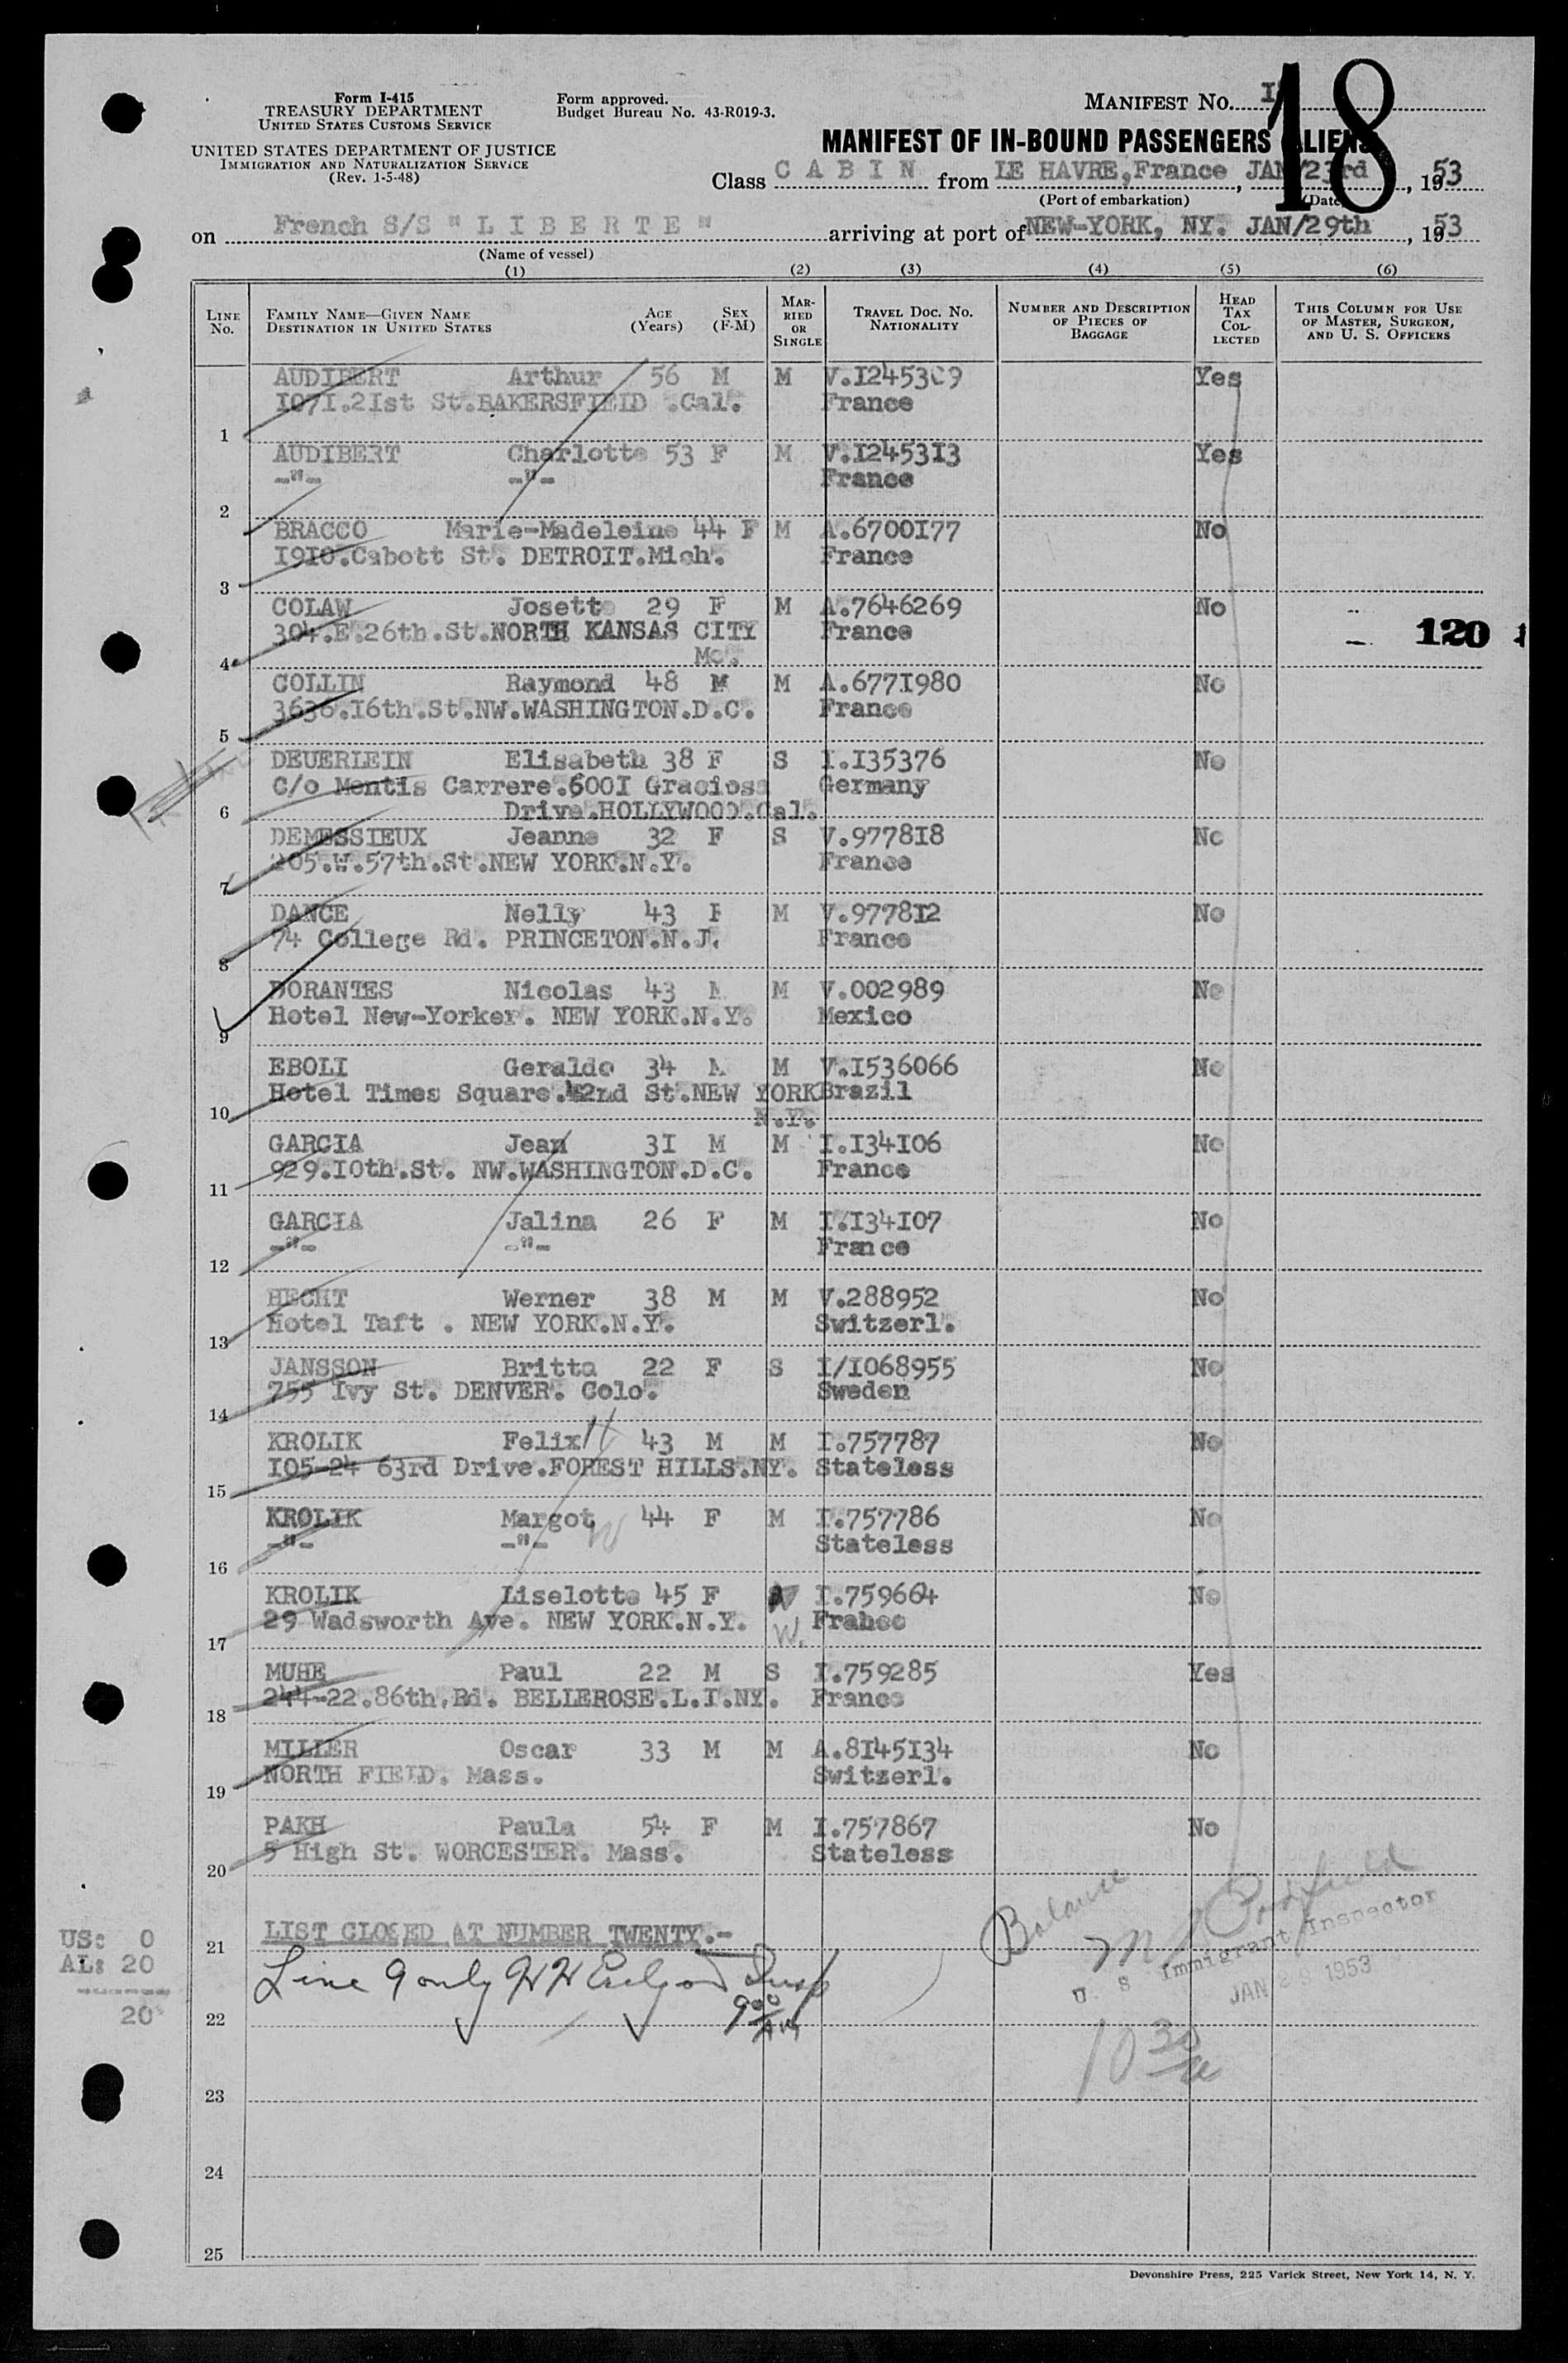 Form I-415
TREASURY DEPARTMENT
UNITED STATES CUSTOMS SERVICE
UNITED STATES DEPARTMENT OF JUSTICE
IMMIGRATION AND NATURALIZATION SERVICE
(Rev. 1-5-48)
Form approved.
Budget Bureau No. 43-R019-3.
MANIFEST NO. 18
MANIFEST OF IN-BOUND PASSENGERS (ALIENS)
Class C A B I N from LE HAVRE,France, JAN/23rd, 1953
(Port of embarkation) (Date)
on French S/S " L I B E R T E " arriving at port of NEW-YORK, NY. JAN/29th, 1953
(Name of vessel)
(1) (2) (3) (4) (5) (6)
LINE No. FAMILY NAME—GIVEN NAME DESTINATION IN UNITED STATES AGE (Years) SEX (F-M) MARRIED OR SINGLE TRAVEL DOC. NO. NATIONALITY NUMBER AND DESCRIPTION OF PIECES OF BAGGAGE HEAD TAX COLLECTED THIS COLUMN FOR USE OF MASTER, SURGEON, AND U. S. OFFICERS
AUDIBERT Arthur 56 M M V.I2453C9 Yes
I07I.2Ist St.BAKERSFIELD .Cal. France
1
AUDIBERT Charlotte 53 F M V.I2453I3 Yes
-"- -"- France
2
BRACCO Marie-Madeleine 44 F M A.6700I77 No
I9I0.Cabott St. DETROIT.Mich. France
3
COLAW Josette 29 F M A.7646269 No
304.E.26th.St.NORTH KANSAS CITY France 120
Mo.
4
COLLIN Raymond 48 M M A.677I980 No
3636.I6th.St.NW.WASHINGTON.D.C. France
5
DEUERLEIN Elisabeth 38 F S I.I35376 No
C/o Mentis Carrere.600I Graciosa Germany
Drive.HOLLYWOOD.Cal.
6
DEMESSIEUX Jeanne 32 F S V.9778I8 No
205.W.57th.St.NEW YORK.N.Y. France
7
DANCE Nelly 43 F M V.9778I2 No
74 College Rd. PRINCETON.N.J. France
8
DORANTES Nicolas 43 M M V.002989 No
Hotel New-Yorker. NEW YORK.N.Y. Mexico
9
EBOLI Geraldo 34 M M V.I536066 No
Hotel Times Square.42nd St.NEW YORK Brazil
N.Y.
10
GARCIA Jean 3I M M I.I34I06 No
929.I0th.St. NW.WASHINGTON.D.C. France
11
GARCIA Jalina 26 F M I.I34I07 No
-"- -"- France
12
HECHT Werner 38 M M V.288952 No
Hotel Taft . NEW YORK.N.Y. Switzerl.
13
JANSSON Britta 22 F S I/I068955 No
755 Ivy St. DENVER. Colo. Sweden
14
KROLIK Felix 43 M M I.757787 No
I05-24 63rd Drive.FOREST HILLS.NY. Stateless
15
KROLIK Margot 44 F M I.757786 No
-"- -"- Stateless
16
KROLIK Liselotte 45 F W I.759664 No
29 Wadsworth Ave. NEW YORK.N.Y. W. France
17
MUHE Paul 22 M S I.759285 Yes
244-22.86th.Rd. BELLEROSE.L.I.NY. France
18
MILLER Oscar 33 M M A.8I45I34 No
NORTH FIELD. Mass. Switzerl.
19
PAKH Paula 54 F M I.757867 No
5 High St. WORCESTER. Mass. Stateless
20
LIST CLOSED AT NUMBER TWENTY.-
21
US: 0
AL: 20
20
Line 9 only Insp
9 00 AM
22
Balance
U. S. Immigrant Inspector
JAN 29 1953
10 30
23
24
25
Devonshire Press, 225 Varick Street, New York 14, N. Y.